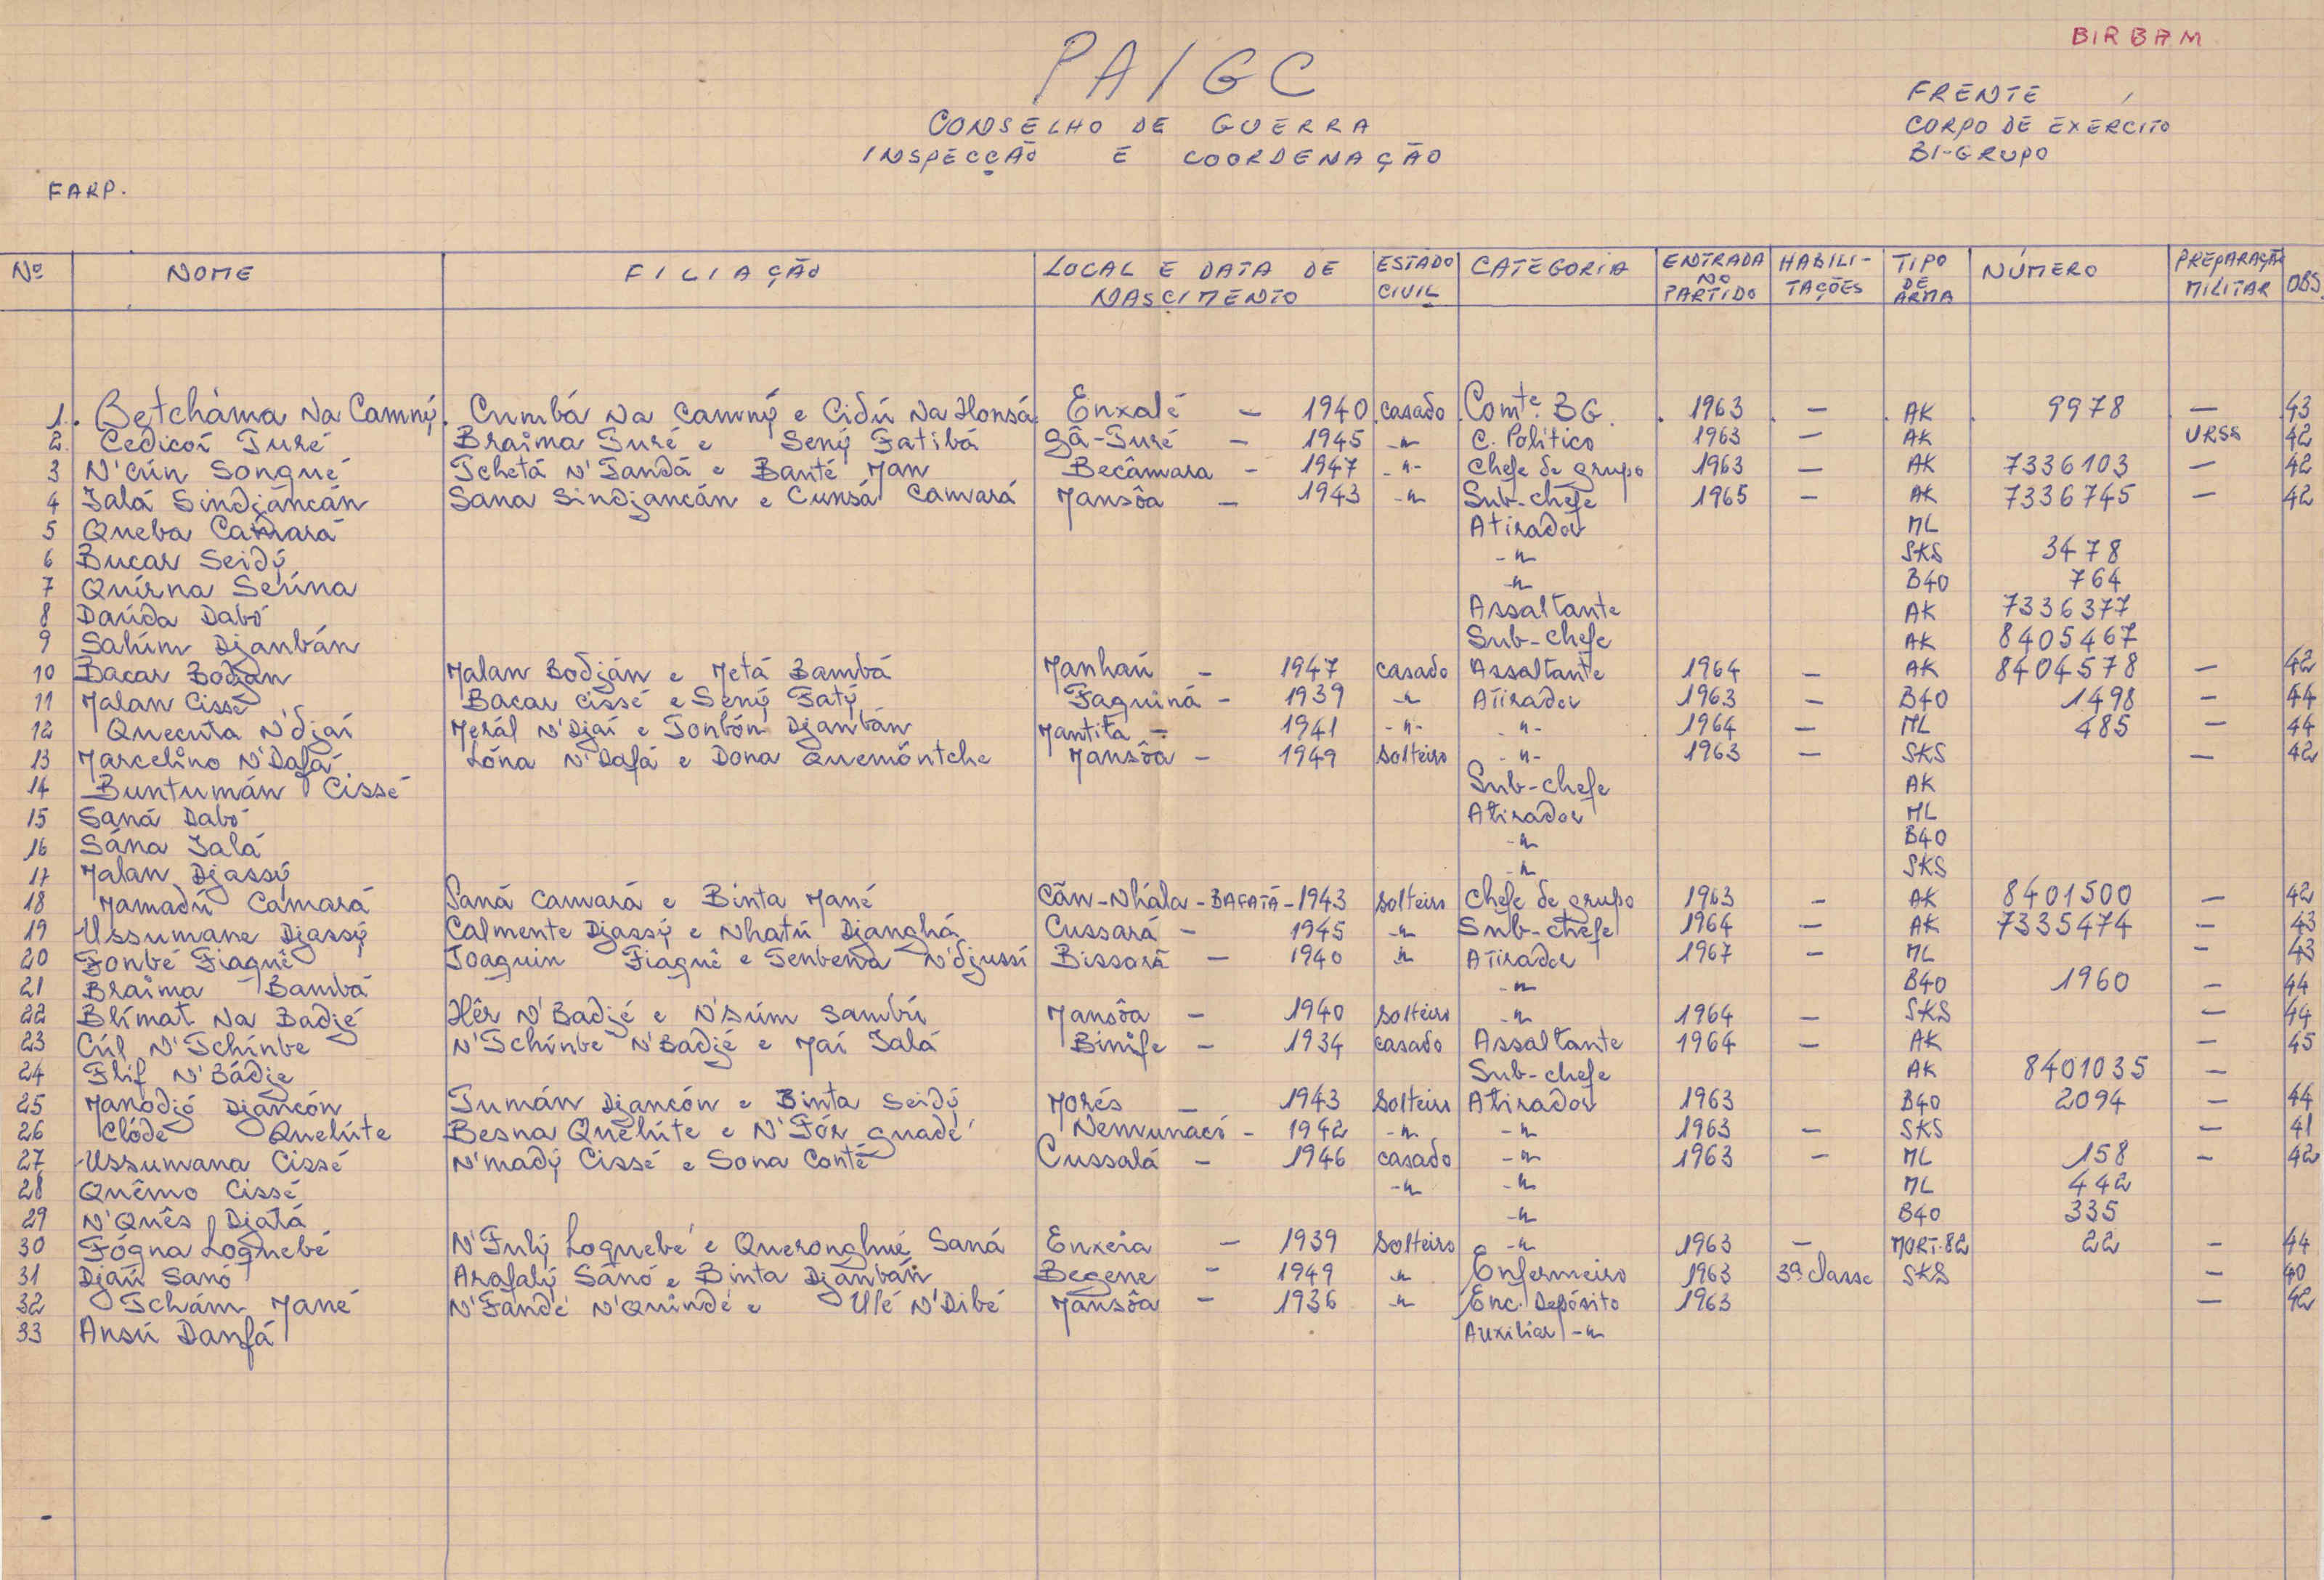 BIRBAM
PAIGC
FRENTE
CONSELHO DE GUERRA
CORPO DE EXÉRCITO
INSPECÇÃO E COORDENAÇÃO
BI-GRUPO
FARP.
Nº NOME FILIAÇÃO LOCAL E DATA DE NASCIMENTO ESTADO CIVIL CATEGORIA ENTRADA NO PARTIDO HABILI-TAÇÕES TIPO DE ARMA NÚMERO PREPARAÇÃO MILITAR OBS
1. Betcháma Na Camný. Cumbá Na Camný e Cidú Na Honsá. Enxalé - 1940 casado Comte. BG. 1963 - AK 9978 - 43
2 Cedicoi Turé Braima Turé e Sený Fatibá Gã-Turé - 1945 -"- C. Político 1963 - AK URSS 42
3 N'Cún Songué Tchetá N'Tandá e Banté Man Becâmara - 1947 -"- Chefe de grupo 1963 - AK 7336103 - 42
4 Ialá Sindjáncán Sana Sindjancán e Cunsá Camará Mansôa - 1943 -"- Sub-chefe 1965 - AK 7336745 - 42
5 Queba Camará Atirador ML
6 Bucar Seidý -"- SKS 3478
7 Quírna Seúna -"- B40 764
8 Daúda Dabó Assaltante AK 7336377
9 Sahúm Djanbán Sub-chefe AK 8405467
10 Bacar Bodján Malan Bodján e Metá Bambá Manhaú - 1947 casado Assaltante 1964 - AK 8404578 - 42
11 Malan Cissé Bacar Cissé e Sený Fatý Faquiná - 1939 -"- Atirador 1963 - B40 1498 - 44
12 Quecuta N'djaí Merál N'Djaí e Tonbón Djanbán Mantita - 1941 -"- -"- 1964 - ML 485 - 44
13 Marcelino N'Dafá Lóna N'Dafá e Dona Quemóntche Mansôa - 1949 Solteiro -"- 1963 - SKS - 42
14 Buntumán Cissé Sub-chefe AK
15 Saná Dabó Atirador ML
16 Sána Ialá -"- B40
17 Malan Djassý -"- SKS
18 Mamadú Camará Saná Camará e Binta Mané Cãn-Nhála - BAFATÁ - 1943 Solteiro Chefe de grupo 1963 - AK 8401500 - 42
19 Ussumane Djassý Calmente Djassý e Nhatú Djanghá Cussará - 1945 -"- Sub-chefe 1964 - AK 7335474 - 43
20 Fonbé Fiagnê Joaquin Fiagnê e Tenbena N'djussí Bissorã - 1940 -"- Atirador 1967 - ML - 43
21 Braima Bambá -"- B40 1960 - 44
22 Blímat Na Badjé Hêr N'Badjé e N'súm Sambú Mansôa - 1940 Solteiro -"- 1964 - SKS - 44
23 Cúl N'Tchínbe N'Tchínbe N'Badjé e Maí Ialá Binife - 1934 casado Assaltante 1964 - AK - 45
24 Flif N'Bádje Sub-chefe AK 8401035 -
25 Manodjó Djancón Tumán Djancón e Binta Seidý Morés - 1943 Solteiro Atirador 1963 B40 2094 - 44
26 Clóde Quelúte Besna Quelúte e N'Fór Guadé Nemunacó - 1942 -"- -"- 1963 - SKS - 41
27 Ussumana Cissé N'madý Cissé e Sona Conté Cussalá - 1946 casado -"- 1963 - ML 158 - 42
28 Quêmo Cissé -"- -"- ML 442
29 N'Quês Djatá -"- B40 335
30 Fógna Loguebé N'Fulý Loguebé e Queronghué Saná Enxeia - 1939 Solteiro -"- 1963 - MORT.82 22 - 44
31 Djáu Sanó Arafalý Sanó e Binta Djánbán Begene - 1949 -"- Enfermeiro 1963 3ª classe SKS - 40
32 Tchám Mané N'Fandé N'Quindé e Ulé N'Dibé Mansôa - 1936 -"- Enc. Depósito 1963 - 42
33 Ansú Danfá Auxiliar -"-